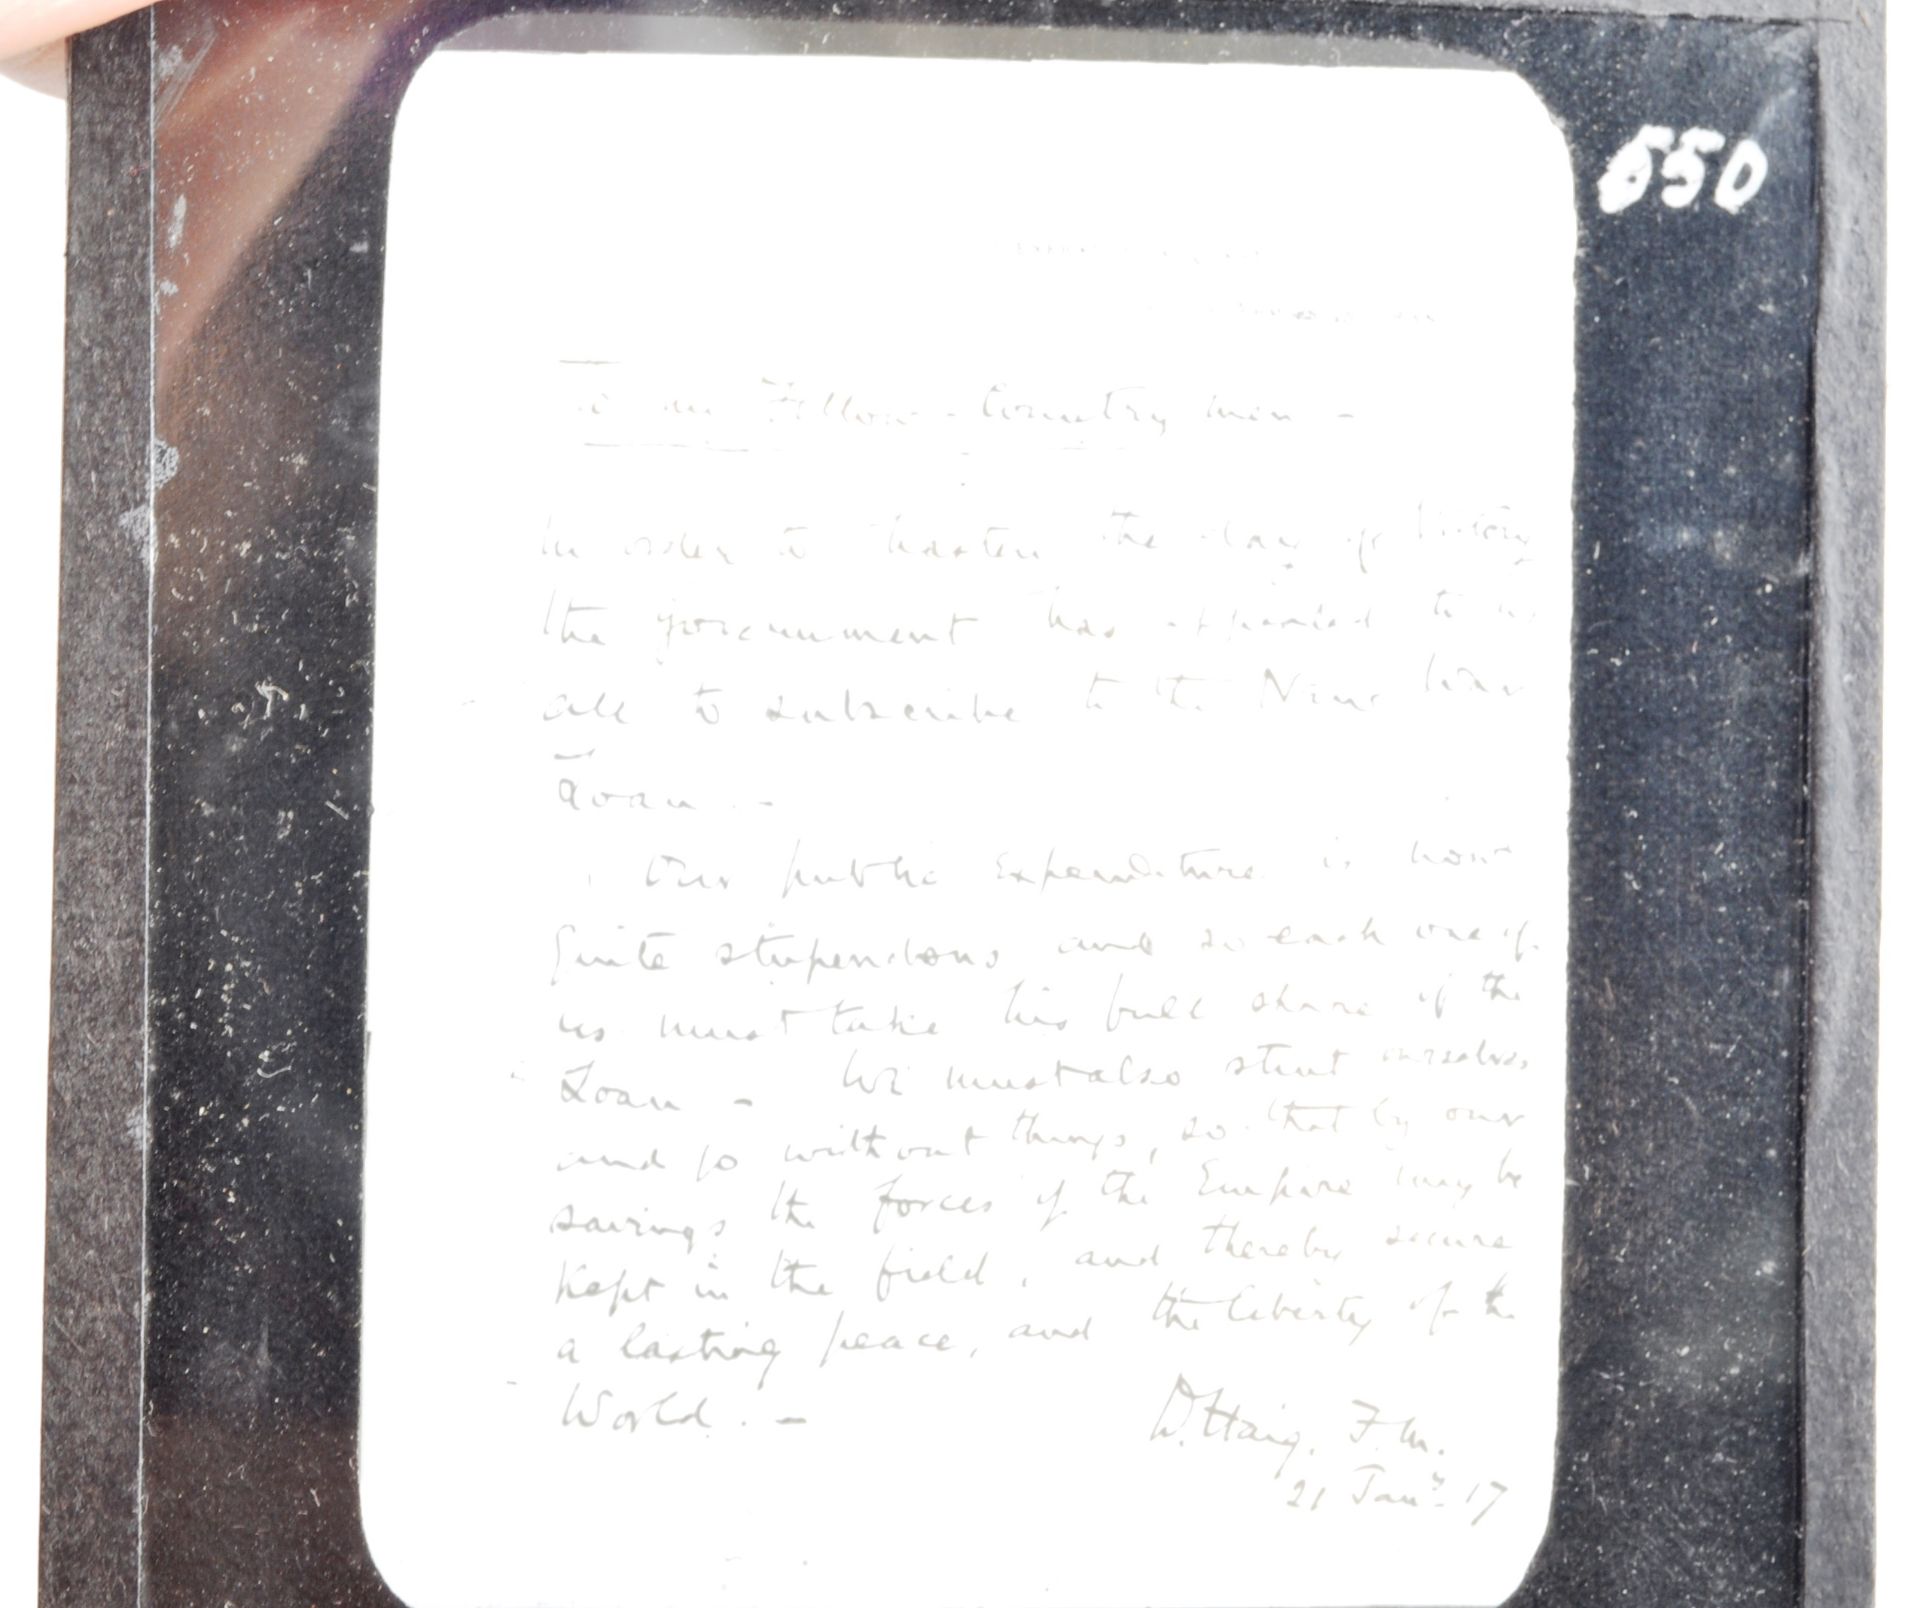 550
To my Fellow-Country men -
In order to hasten the day of Victory
the government has appealed to us
all to subscribe to the New War
Loan. -
Our public Expenditure is now
Quite stupendous and so each one of
us must take his full share of the
Loan - We must also stint ourselves
and go without things, so that by our
savings the forces of the Empire may be
kept in the field, and thereby secure
a lasting peace, and the liberty of the
World. -
D. Haig. F.M.
21 Jany 17